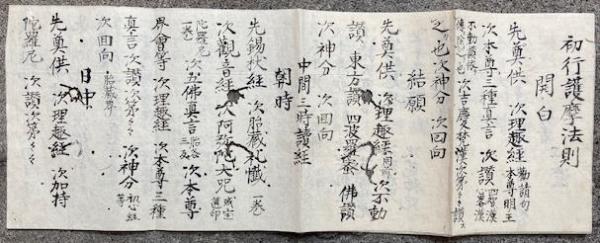 初行護摩法則
開白
先奠供 次理趣経 勧請句 本尊明王
次本尊三種真言 次讃 四智漢 心畧漢
不動
次吉慶梵漢次第〻讃
之也次神分 次回向
結願
先奠供 次理趣経 次不動
讃 東方讃 四波羅蜜 佛讃
次神分 次回向
中間三時讃経
朝時
先錫杖経 次胎蔵礼懺 一巻
次觀音経 次阿弥陀大咒
陀羅尼 一巻 次五佛真言 胎金 三反 次本尊
界會等 次理趣経 次本尊三種
真言 次讃次第〻〻 次神分 初心経 等
次回向 胎蔵界
日中
先奠供 次理趣経 次加持
陀羅尼 次讃次第〻〻